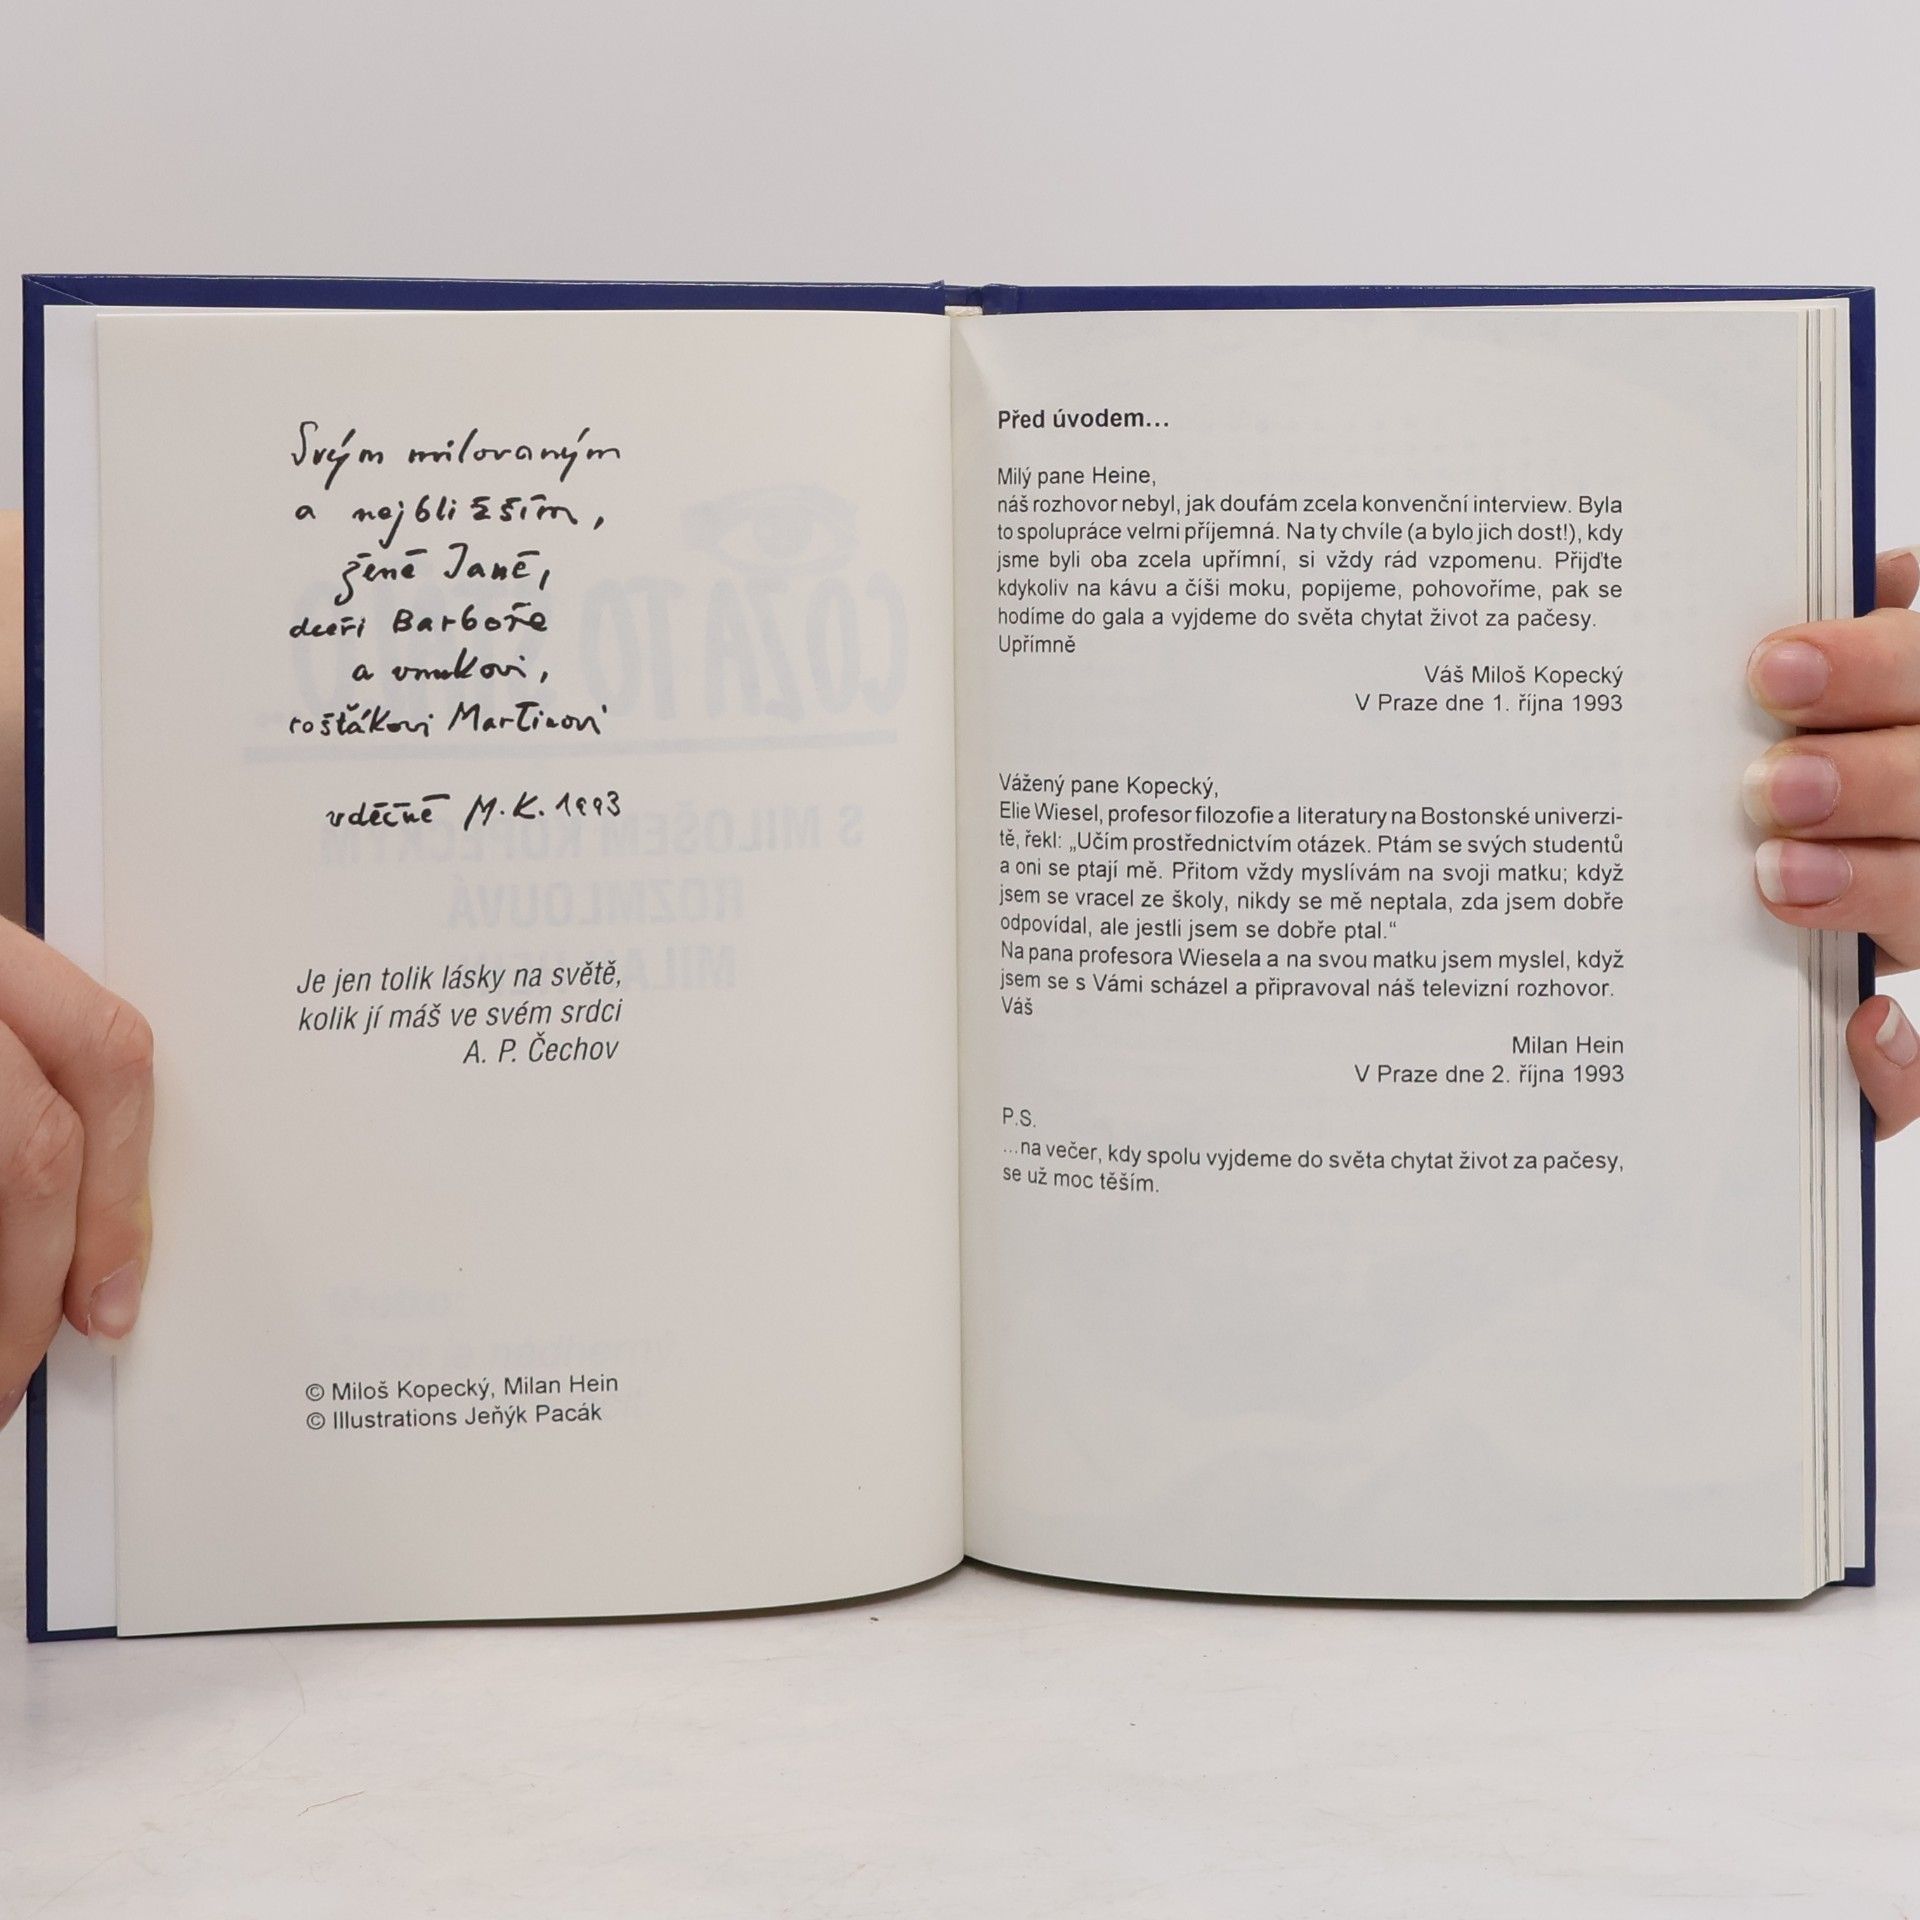 Svým milovaným
a nejbližším,
ženě Janě,
dceři Barboře
a vnukovi,
rošťákovi Martinovi
vděčně M.K. 1993
Je jen tolik lásky na světě,
kolik jí máš ve svém srdci
A. P. Čechov
© Miloš Kopecký, Milan Hein
© Illustrations Jeňýk Pacák
Před úvodem...
Milý pane Heine,
náš rozhovor nebyl, jak doufám zcela konvenční interview. Byla
to spolupráce velmi příjemná. Na ty chvíle (a bylo jich dost!), kdy
jsme byli oba zcela upřímní, si vždy rád vzpomenu. Přijďte
kdykoliv na kávu a číši moku, popijeme, pohovoříme, pak se
hodíme do gala a vyjdeme do světa chytat život za pačesy.
Upřímně
Váš Miloš Kopecký
V Praze dne 1. října 1993
Vážený pane Kopecký,
Elie Wiesel, profesor filozofie a literatury na Bostonské univerzi-
tě, řekl: „Učím prostřednictvím otázek. Ptám se svých studentů
a oni se ptají mě. Přitom vždy myslívám na svoji matku; když
jsem se vracel ze školy, nikdy se mě neptala, zda jsem dobře
odpovídal, ale jestli jsem se dobře ptal.“
Na pana profesora Wiesela a na svou matku jsem myslel, když
jsem se s Vámi scházel a připravoval náš televizní rozhovor.
Váš
Milan Hein
V Praze dne 2. října 1993
P.S.
...na večer, kdy spolu vyjdeme do světa chytat život za pačesy,
se už moc těším.